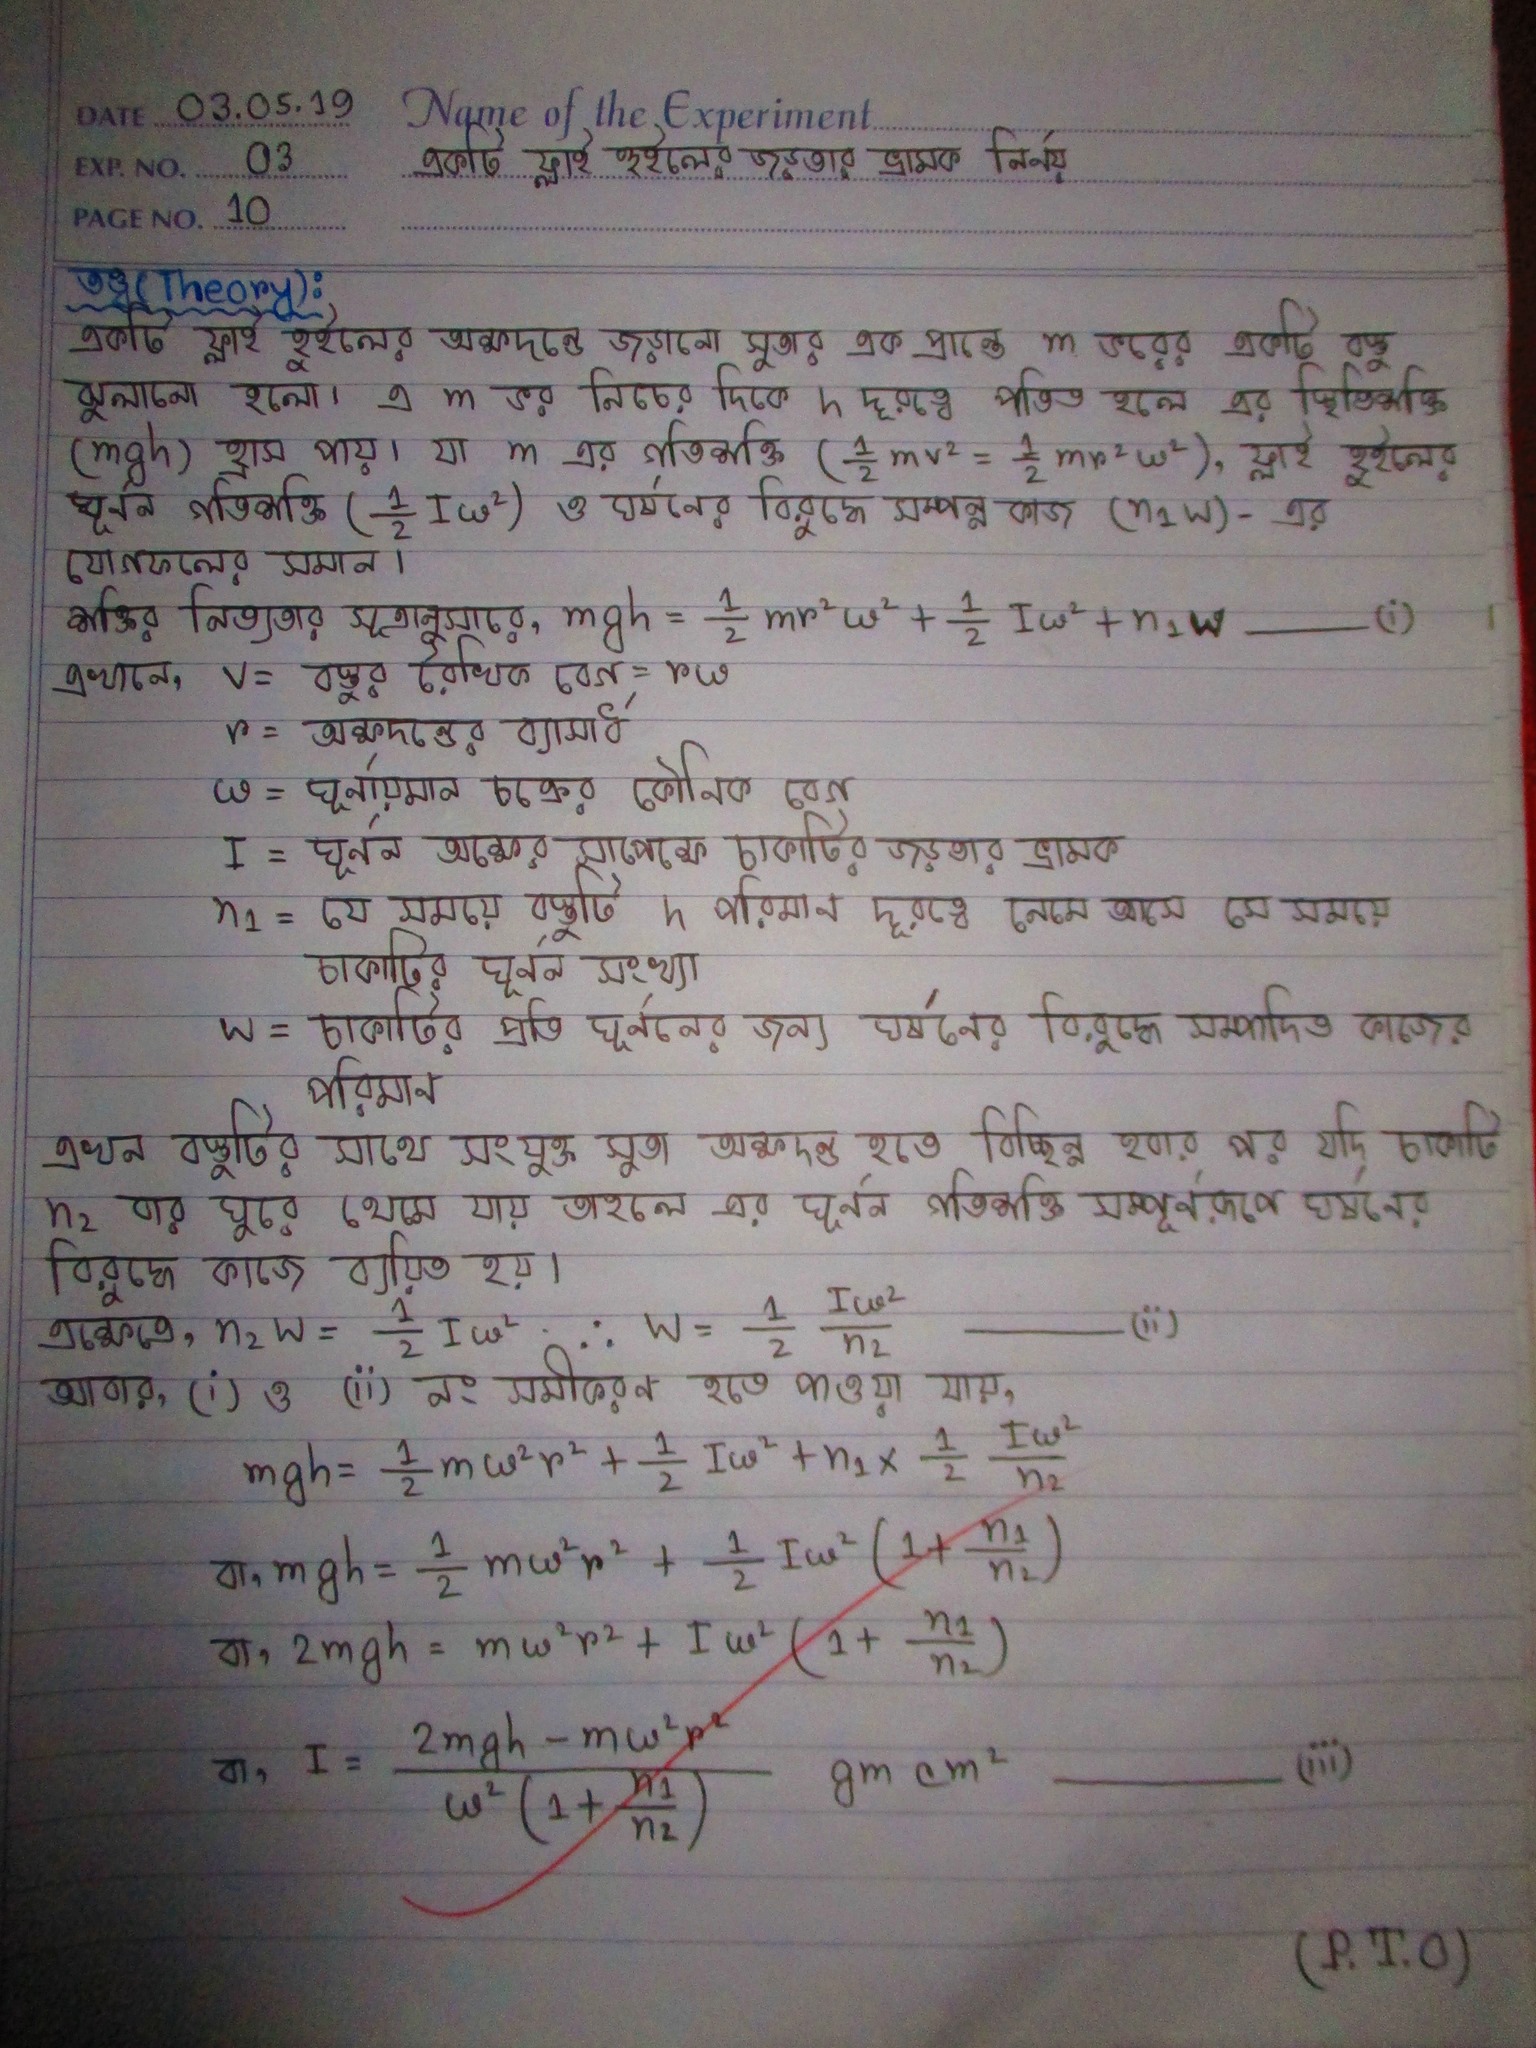 DATE 03.05.19 Name of the Experiment
EXP. NO. 03 একটি ফ্লাই হুইলের জড়তার ভ্রামক নির্নয়
PAGE NO. 10
তত্ত্ব (Theory):
একটি ফ্লাই হুইলের অক্ষদন্ডে জড়ানো সুতার এক প্রান্তে m ভরের একটি বস্তু
ঝুলানো হলো। এ m ভর নিচের দিকে h দূরত্বে পতিত হলে এর স্থিতিশক্তি
(mgh) হ্রাস পায়। যা m এর গতিশক্তি (1/2 mv² = 1/2 mr²ω²), ফ্লাই হুইলের
ঘূর্নন গতিশক্তি (1/2 Iω²) ও ঘর্ষনের বিরুদ্ধে সম্পন্ন কাজ (n₁W) - এর
যোগফলের সমান।
শক্তির নিত্যতার সূত্রানুসারে, mgh = 1/2 mr²ω² + 1/2 Iω² + n₁W ——— (i)
এখানে, v = বস্তুর রৈখিক বেগ = rω
r = অক্ষদন্ডের ব্যাসার্ধ
ω = ঘূর্নায়মান চক্রের কৌনিক বেগ
I = ঘূর্নন অক্ষের সাপেক্ষে চাকাটির জড়তার ভ্রামক
n₁ = যে সময়ে বস্তুটি h পরিমান দূরত্বে নেমে আসে সে সময়ে
চাকাটির ঘূর্নন সংখ্যা
W = চাকাটির প্রতি ঘূর্ননের জন্য ঘর্ষনের বিরুদ্ধে সম্পাদিত কাজের
পরিমান
এখন বস্তুটির সাথে সংযুক্ত সুতা অক্ষদন্ড হতে বিচ্ছিন্ন হবার পর যদি চাকাটি
n₂ বার ঘুরে থেমে যায় তাহলে এর ঘূর্নন গতিশক্তি সম্পূর্নরূপে ঘর্ষনের
বিরুদ্ধে কাজে ব্যয়িত হয়।
এক্ষেত্রে, n₂W = 1/2 Iω² ∴ W = 1/2 Iω²/n₂ ——— (ii)
আবার, (i) ও (ii) নং সমীকরন হতে পাওয়া যায়,
mgh = 1/2 mω²r² + 1/2 Iω² + n₁ × 1/2 Iω²/n₂
বা, mgh = 1/2 mω²r² + 1/2 Iω² (1 + n₁/n₂)
বা, 2mgh = mω²r² + Iω² (1 + n₁/n₂)
বা, I = (2mgh − mω²r²)/(ω² (1 + n₁/n₂)) gm cm² ——— (iii)
(P.T.O)